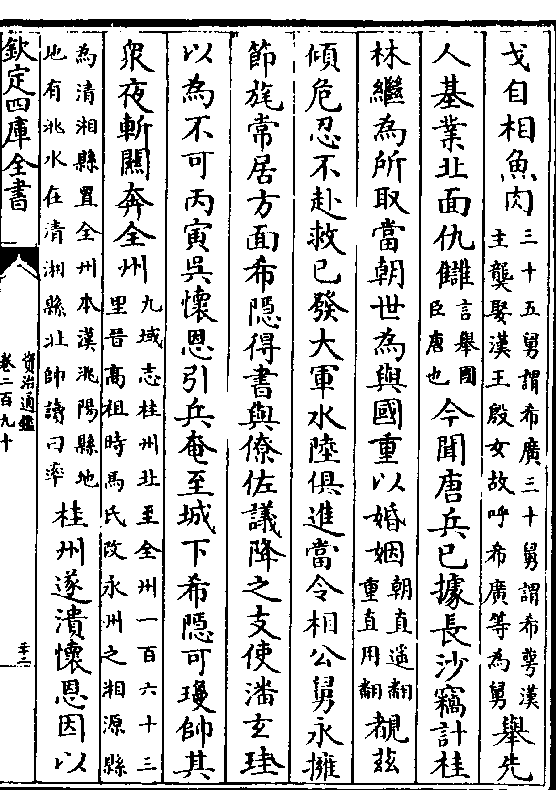 戈自相魚肉三十五舅謂希廣三十舅謂希萼漢主龔娶漢王殷女故呼希廣等為舅舉先
人基業北面仇讎言舉國臣唐也今聞唐兵已據長沙竊計桂
林繼為所取當朝世為與國重以婚姻朝直遥翻重直用翻覩兹
傾危忍不赴救已發大軍水陸俱進當令相公舅永擁
節旄常居方面希隠得書與僚佐議降之支使潘玄珪
以為不可丙寅吳懷恩引兵奄至城下希隠可瓊帥其
衆夜斬關奔全州九域志桂州北至全州一百六十三里晉髙祖時馬氏改永州之湘源縣
為清湘縣置全州本漢洮陽縣地地有洮水在清湘縣北帥讀曰率桂州遂潰懷恩因以
欽定四庫全書
資治通鑑
卷二百九十
三十三